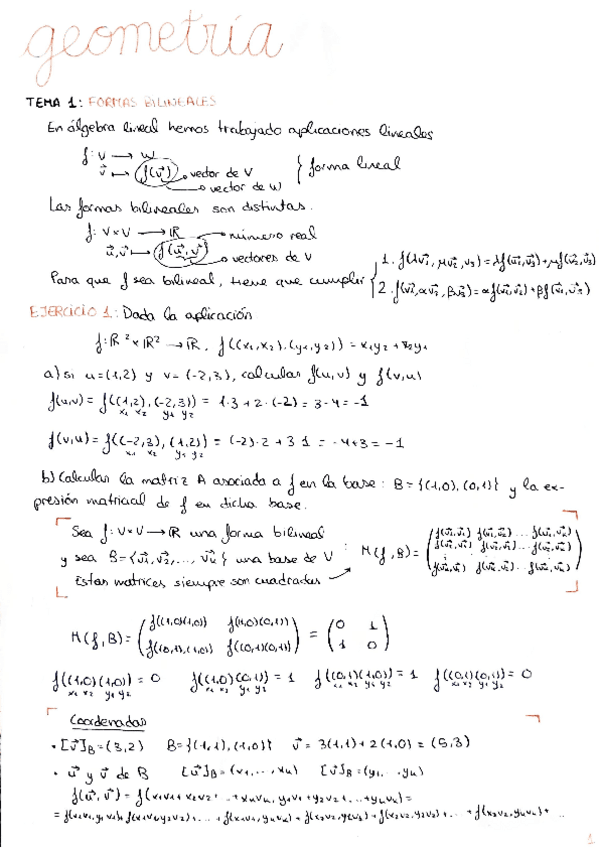 geometría
TEMA 1: FORMAS BILINEALES
En álgebra lineal hemos trabajado aplicaciones lineales
f: V → W
u⃗ → f(v⃗) vector de V } forma lineal
vector de W
Las formas bilineales son distintas.
f: V x V → ℝ número real
u⃗, v⃗ → f(u⃗, v⃗) vectores de V
Para que f sea bilineal, tiene que cumplir
1. f(λv⃗1, μv⃗2, v⃗3) = λf(v⃗1, v⃗3) + μf(v⃗2, v⃗3)
2. f(v⃗1, αv⃗2, βv⃗3) = αf(v⃗1, v⃗2) + βf(v⃗1, v⃗3)
EJERCICIO 1: Dada la aplicación
f: ℝ² x ℝ² → ℝ, f((x1, x2), (y1, y2)) = x1y2 + x2y1
a) si u = (1,2) y v = (-2,3), calcular f(u,v) y f(v,u)
f(u,v) = f((1,2), (-2,3)) = 1·3 + 2·(-2) = 3 - 4 = -1
x1 x2 y1 y2
f(v,u) = f((-2,3), (1,2)) = (-2)·2 + 3·1 = -4+3 = -1
x1 x2 y1 y2
b) Calcular la matriz A asociada a f en la base: B = {(1,0), (0,1)} y la ex-
presión matricial de f en dicha base.
Sea f: V x V → ℝ una forma bilineal
y sea B = {v⃗1, v⃗2, ..., v⃗n} una base de V : M(f, B) =
Estas matrices siempre son cuadradas
M(f, B) = ( f((1,0)(1,0)) f((1,0)(0,1)) ) = ( 0 1 )
( f((0,1),(1,0)) f((0,1)(0,1)) ) ( 1 0 )
f((1,0)(1,0)) = 0 f((1,0)(0,1)) = 1 f((0,1)(1,0)) = 1 f((0,1)(0,1)) = 0
x1 x2 y1 y2 x1 x2 y1 y2 x1 x2 y1 y2 x1 x2 y1 y2
Coordenadas
• [v⃗]B = (3,2) B = {(1,1), (1,0)} v⃗ = 3(1,1) + 2(1,0) = (5,3)
• u⃗ y v⃗ de B [u⃗]B = (x1, ..., xn) [v⃗]B = (y1, ..., yn)
f(u⃗, v⃗) = f(x1v1 + x2v2 + ... + xnvn, y1v1 + y2v2 + ... + ynvn) =
1